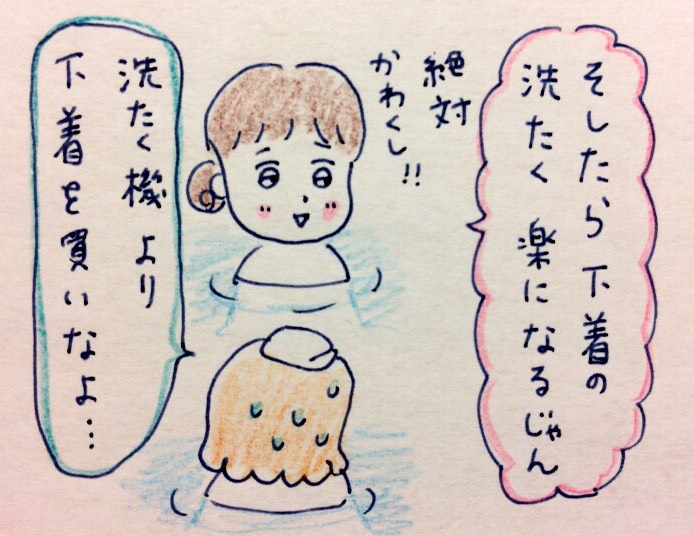 そしたら下着の
洗たく楽になるじゃん
絶対
かわくし!!
洗たく機より
下着を買いなよ…